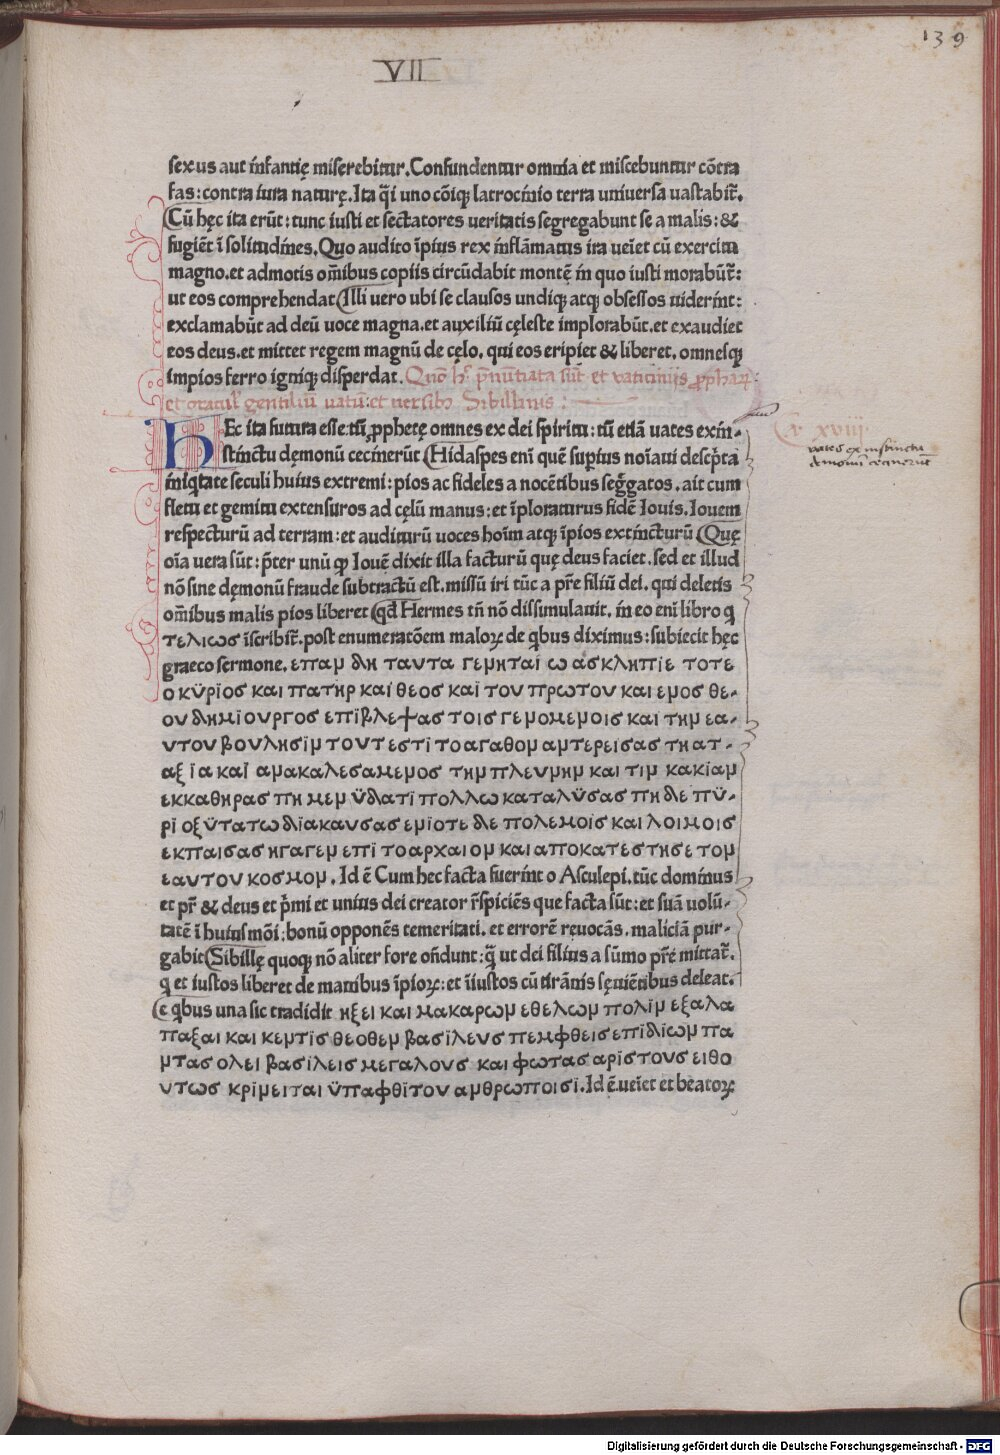 139
VII
sexus aut infantię miserebitur. Confundentur omnia et miscebuntur cōtra
fas: contra iura naturę. Ita q̄i uno cōiqꝫ latrocinio terra uniuersa uastabit̄.
Cū hęc ita erūt: tunc iusti et sectatores ueritatis segregabunt se a malis: &
fugiēt ī solitudines. Quo audito īpius rex inflāmatus ira ueīet cū exercitu
magno. et admotis om̄ibus copiis circūdabit montē in quo iusti morabūt̄:
ut eos comprehendat Illi uero ubi se clausos undiqꝫ atqꝫ obsessos uiderint:
exclamabūt ad deū uoce magna. et auxiliū cęleste implorabūt. et exaudiet
eos deus. et mittet regem magnū de cęlo. qui eos eripiet & liberet. omnesqꝫ
impios ferro igniqꝫ disperdat. Quō h̄ p̄nūtiata sūt et vaticiniis ꝓphaꝝ:
et oracul' gentiliū uatū: et uersibꝫ Sibillinis:
HEc ita futura esse. tū ꝓphetę omnes ex dei spiritu: tū etiā uates exin-
stinctu dęmonū cecinerūt Hidaspes enī quē suꝑius noīaui descp̄ta
iniq̄tate seculi huius extremi: pios ac fideles a nocētibus seḡgatos. ait cum
fletu et gemitu extensuros ad cęlū manus: et īploraturus fidē Iouis. Iouem
respecturū ad terram: et auditurū uoces hoīm atqꝫ īpios extincturū Quę
oīa uera sūt: p̄ter unū ꝙ Iouē dixit illa facturū quę deus faciet. sed et illud
nō sine dęmonū fraude subtractū est. missū iri tūc a pr̄e filiū dei. qui deletis
om̄ibus malis pios liberet qd̄ Hermes tn̄ nō dissimulauit. in eo enī libro q
τελιωσ īscribit̄. post enumeratōem maloꝝ de q̄bus diximus: subiecit hęc
graeco sermone. επαμ δη ταυτα γεμηται ω ασκληπιε τοτε
ο κϋριος και πατηρ και θεος και του πρωτου και εμος θε-
ου δημιουργοσ επιβλεψας τοις γεμομεμοις και τημ εα-
υτου βουλησιμ τουτεστι το αγαθομ αμτερεισας τη ατ-
αξια και αμακαλεσαμεμος τημ πλευμημ και τιμ κακιαμ
εκκαθηρασ πη μεμ ϋδατι πολλω καταλϋσας πη δε πϋ-
ρι οξϋτατω διακαυσας εμιοτε δε πολεμοις και λοιμοις
εκπαισας ηγαγεμ επι το αρχαιομ και αποκατεστησε τομ
εαυτου κοσμομ. Id ē Cum hec facta fuerint o Asculepi. tūc dominus
et pr̄ & deus et p̄mi et unius dei creator r̄spiciēs que facta sūt: et suā uolū-
tatē ī huius mōi: bonū opponēs temeritati. et errorē reuocās. maliciā pur-
gabit Sibillę quoqꝫ nō aliter fore on̄dunt: q̄ ut dei filius a sūmo pr̄e mittat̄.
q et iustos liberet de manibus īpioꝝ: et īiustos cū tirānis sęuiētibus deleat.
e q̄bus una sic tradidit ηξει και μακαρωμ εθελωμ πολιμ εξαλα
παξαι και κεμτις θεοθεμ βασιλευς πεμφθεις επιδιωμ πα
μτας ολει βασιλεις μεγαλους και φωτας αριστους ειθο
υτως κριμειται ϋπ αφθιτου αμθρωποισι. Id ē. ueīet et beatoꝝ
Ca xviii
vates ex instinctu
demonū cecinerūt
Digitalisierung gefördert durch die Deutsche Forschungsgemeinschaft - DFG